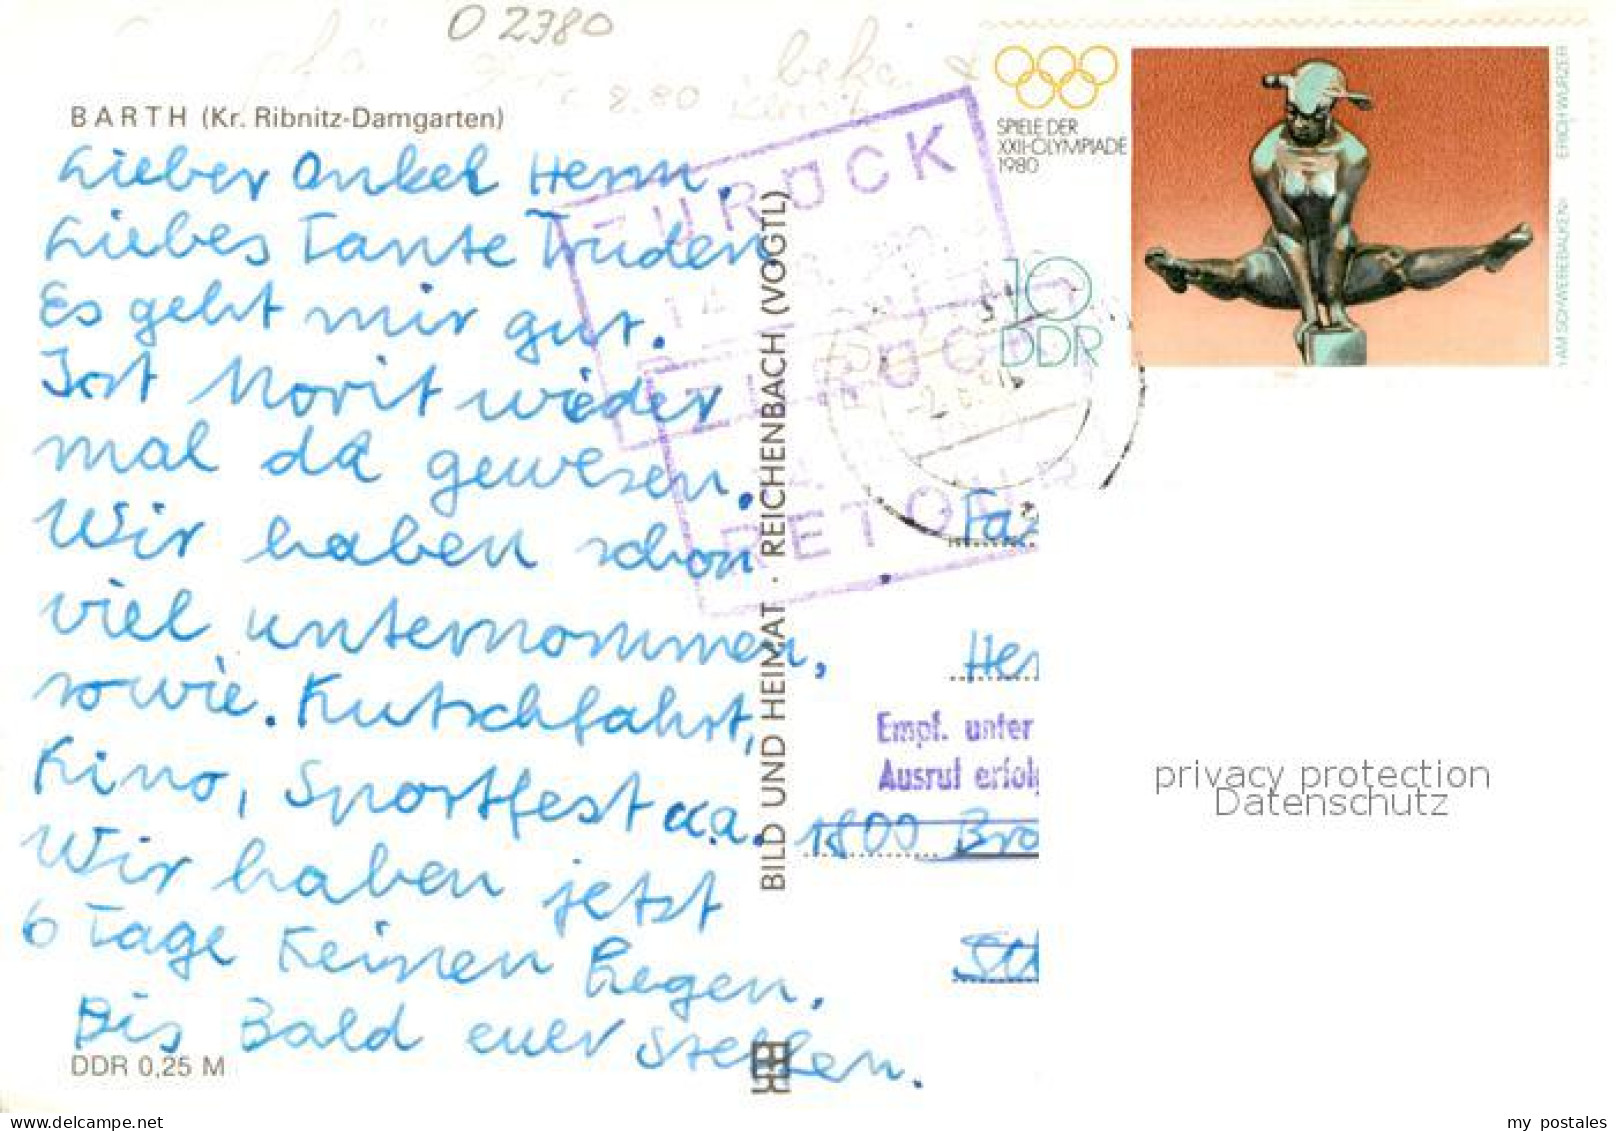 O 2380
BARTH (Kr. Ribnitz-Damgarten)
Lieber Onkel Herm.
Liebes Tante Truden
Es geht mir gut.
Ist Morit wieder
mal da gewesen.
Wir haben schon
viel unternommen,
sowie. Kutschfahrt,
Kino, Sportfest u.a.
Wir haben jetzt
6 Tage Keinen Regen.
Bis Bald euer Steffen.
DDR 0,25 M
BILD UND HEIMAT · REICHENBACH (VOGTL)
ZURÜCK
ZURÜCK
RETOUR
SPIELE DER
XXII·OLYMPIADE
1980
10
DDR
AM SCHWEBEBALKEN»
ERICH WURZER
Fa
Her
Empf. unter
Ausruf erfolg
1800 Bra
privacy protection
Datenschutz
my postales